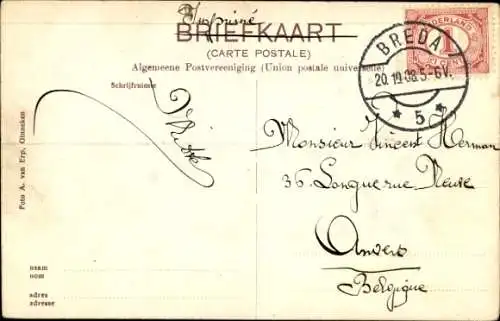 Imprimé
BRIEFKAART
(CARTE POSTALE)
Algemeene Postvereeniging (Union postale universelle)
Schrijfruimte
NEDERLAND
1
CENT
BREDA
20.10.08.5-6V.
* 5 *
Monsieur Vincent Herman
36, Longue rue Neuve
Anvers
Belgique
Foto A. van Erp, Ginneken
naam
nom
adres
adresse